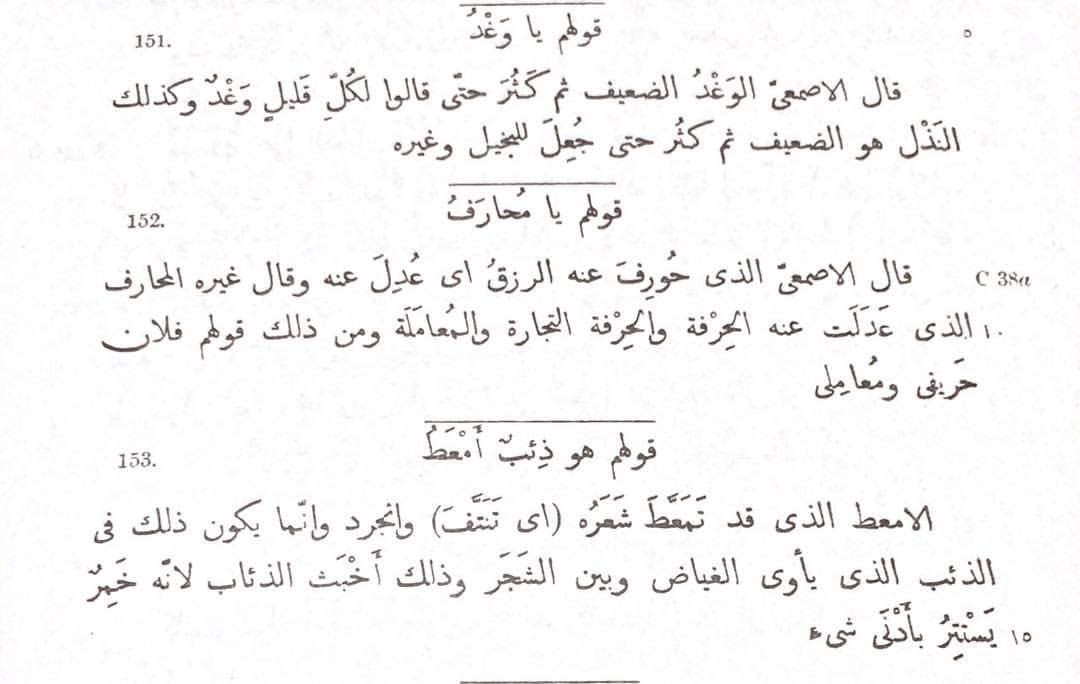 151. قولهم يا وَغْدُ ٥
قال الاصمعىّ الوَغْدُ الضعيف ثم كَثُرَ حتّى قالوا لكُلِّ قَليلٍ وَغْدٌ وكذلك
النَذْل هو الضعيف ثم كثُر حتى جُعِلَ للبخيل وغيره
152. قولهم يا مُحارَفُ
C 38a قال الاصمعىّ الذى حُورِفَ عنه الرزقُ اى عُدِلَ عنه وقال غيره المحارف
١٠ الذى عَدَلَت عنه الحِرْفة والحِرْفة التجارة والمُعامَلَة ومن ذلك قولهم فلان
حَريفى ومُعامِلى
153. قولهم هو ذِئبٌ أَمْعَطُ
الامعط الذى قد تَمَعَّطَ شَعَرُه (اى تَنَتَّفَ) وانجرد وانّما يكون ذلك فى
الذئب الذى يأوى الغياض وبين الشَجَر وذلك أَخْبَث الذئاب لانّه خَمِرٌ
١٥ يَسْتتِرُ بأَدْنَى شىء